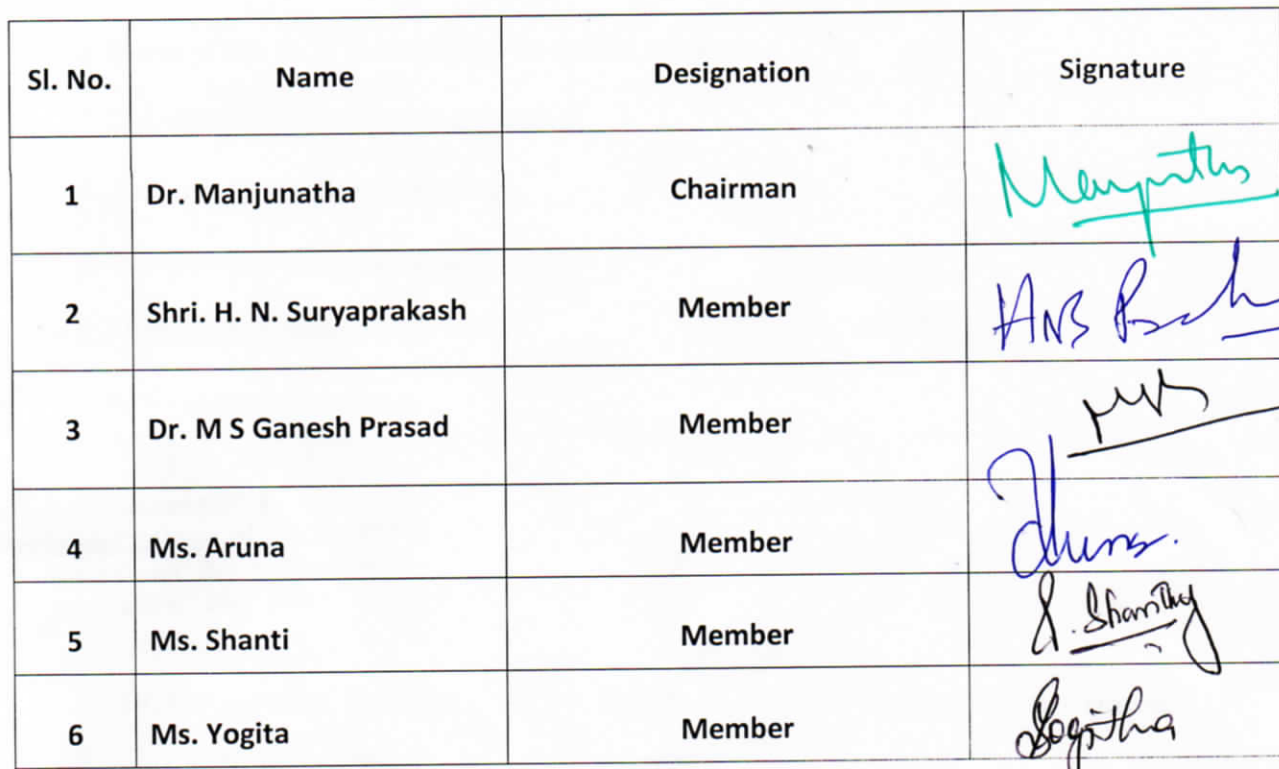 Sl. No. Name Designation Signature
1 Dr. Manjunatha Chairman Manjunatha
2 Shri. H. N. Suryaprakash Member
3 Dr. M S Ganesh Prasad Member
4 Ms. Aruna Member Aruna.
5 Ms. Shanti Member S. Shanthy
6 Ms. Yogita Member Yogitha